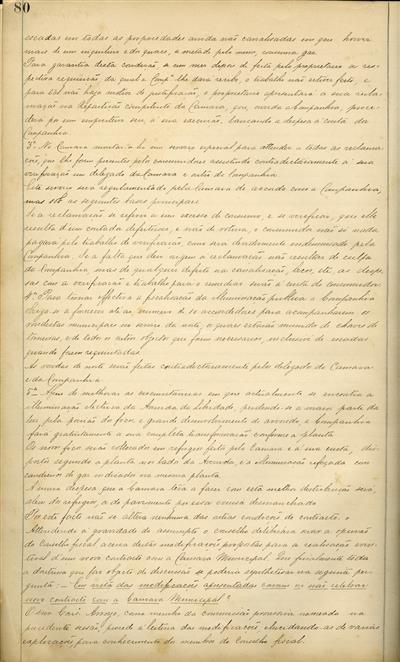 80
escadas em todas as propriedades ainda não canalisadas em que houver
mais de um inquilino e do quaes, a metade pelo menos, consuma gaz.
Para garantia desta condição, se um mez depois de feita pelo proprietario a res-
pectiva requisição, da qual a Compª lhe dará recibo, o trabalho não estiver feito, e
para tal não haja motivo de justificação, o proprietario apresentará a sua recla-
mação na repartição competente da Camara, que, ouvida a Companhia, proce-
derá por um empreiteiro seu, á sua execução, lançando a despesa á conta da
Companhia.
3ª Na Camara montar-se-ha um serviço especial para attender a todas as reclama-
ções, que lhe forem presentes pelo consumidor assistindo contradictoriamente á sua
verificação um delegado da Camara e outro da Companhia.
Este serviço será regulamentado pela Camara de accordo com a Companhia,
mas sob as seguintes bases principaes:
Se a reclamação se referir a um excesso de consumo, e se verificar, que elle
resulta d'um contador defeituoso, e não de rotura, o consumidor não só nada
pagará pelo trabalho de verificação, como será devidamente indemnisado pela
Companhia. Se a falta que deu origem a reclamação não resultar de culpa
da Companhia, mas de qualquer defeito na canalisação, bicos, etc, as despe-
sas com a verificação e trabalho para o remediar serão á custa do consumidor.
4ª Para tornar effectiva a fiscalisação da illuminação publica a Companhia
obriga-se a fornecer até ao numero de 10 accendedores para acompanharem os
vedetas municipaes no serviço da noite, o quaes estarão munidos de chaves de
torneiras, e de todos os outros objectos que forem necessarios, inclusivé de escadas
quando forem requisitadas.
As rondas de noite serão feitas contradictoriamente pelos delegados da Camara
e da Companhia.
5ª Afim de melhorar as circumstancias em que actualmente se encontra a
illuminação electrica da Avenida da Liberdade, perdendo-se a maior parte da
luz pela posição do foco, e grande desenvolvimento do arvoredo, a Companhia
fará gratuitamente a sua completa transformação conforme a planta.
Os novos focos serão collocados em refugios feitos pela Camara e á sua custa, dis-
postos segundo a planta nos lados da Avenida, e a illuminação reforçada com
candieiros de gaz indicados na mesma planta.
A unica despesa que a Camara terá a fazer com esta melhor distribuição será,
alem do refugio, a do pavimento por essa causa desmanchado.
Por este facto não se altera nenhuma das outras condições do contracto.
Attendendo á grandeza do assumpto o conselho deliberou ouvir a opinião
do Conselho fiscal ácerca destas modificações propostas para a realisação even-
tual d'um novo contracto com a Camara Municipal. Em finalmente toda
a doutrina que faz objecto de discussão se poderia synthetisar na seguinte per-
gunta: – Em vista das modificações apresentadas convem ou não celebrar
novo contracto com a Camara Municipal?
O snr. Araujo, como membro da commissão provisoria nomeada na
precedente sessão, procede á leitura das modificações elucidando-as de varias
explicações para conhecimento dos membros do Conselho fiscal.